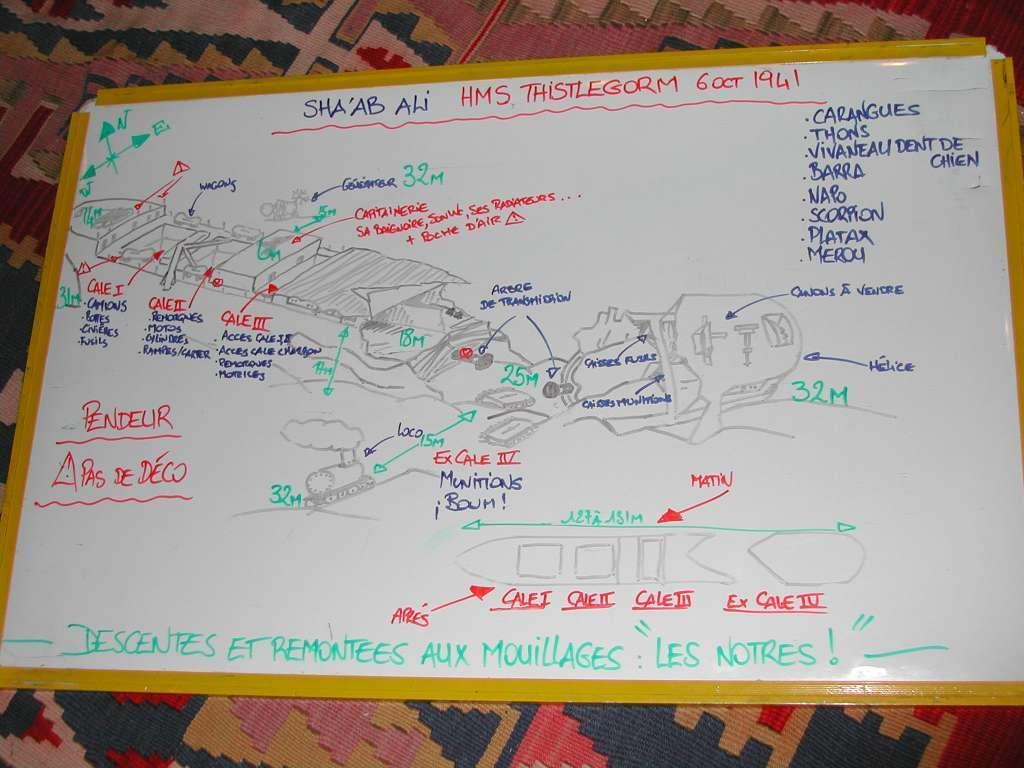 SHA'AB ALI HMS THISTLEGORM 6 OCT 1941
. CARANGUES
. THONS
. VIVANEAU DENT DE
CHIEN
. BARRA
. NAPO
. SCORPION
. PLATAX
. MEROU
N
E
WAGONS
GÉNÉRATEUR 32M
14M
5M
CAPITAINERIE
SA BAIGNOIRE, SON WC, SES RADIATEURS ...
+ POCHE D'AIR
6M
31M
CALE I
. CAMIONS
. BOTTES
. CIVIÈRES
. FUSILS
CALE II
. REMORQUES
. MOTOS
. CYLINDRES
. RAMPES/CARTER
CALE III
. ACCES CALE II
. ACCES CALE CHARBON
. REMORQUES
. MOTRICES
ARBRE
DE TRANSMISSION
18M
17M
25M
CAISSES FUSILS
CAISSES MUNITIONS
CANONS À VENDRE
HÉLICE
32M
PENDEUR
PAS DE DÉCO
LOCO
15M
32M
EX CALE IV
MUNITIONS
¡ BOUM !
MATIN
127 À 131M
APRÉS
CALE I CALE II CALE III EX CALE IV
DESCENTES ET REMONTEES AUX MOUILLAGES : "LES NOTRES !"